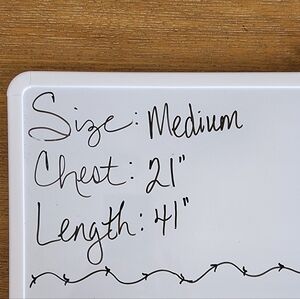 Size: Medium
Chest: 21"
Length: 41"